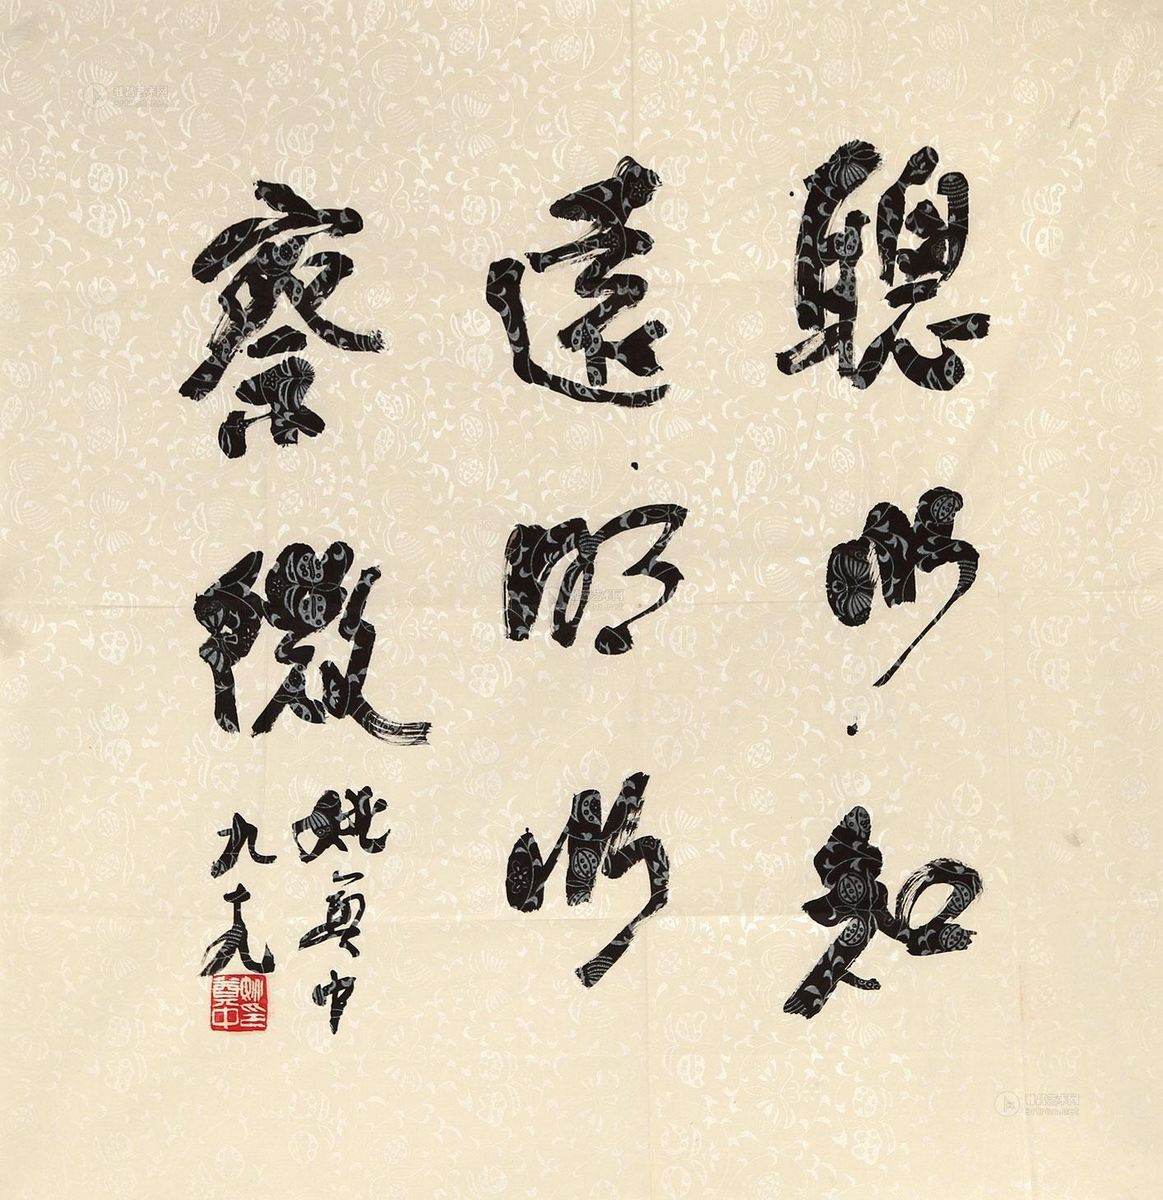 聰以知
遠明以
察微
姚奠中
九十九
姚印奠中
雅昌艺术网
artron.net